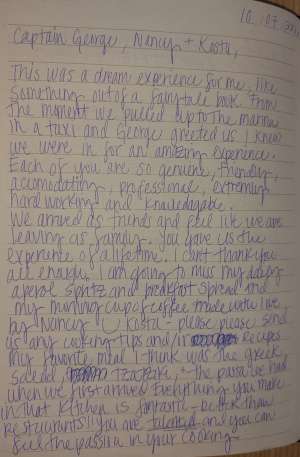 10.07.
Captain George, Nancy + Kosta,
This was a dream experience for me, like
something out of a fairytale book. From
the moment we pulled up to the marina
in a taxi and George greeted us I knew
we were in for an amazing experience.
Each of you are so genuine, friendly,
acomodating, professional, extremely
hard working and knowledgable.
We arrived as friends and feel like we are
leaving as family. You gave us the
experience of a lifetime. I cant thank you
all enough. I am going to miss my daily
aperol spritz and breakfast spread and
my morning cup of coffee made with love
by Nancy. Kosta - please please send
us any cooking tips and/or recipes
My favorite meal I think was the greek
salad, tzatziki, + the pasta we had
when we first arrived. Everything you make
in that kitchen is fantastic - better than
restaurants! You are talented and you can
feel the passion in your cooking -